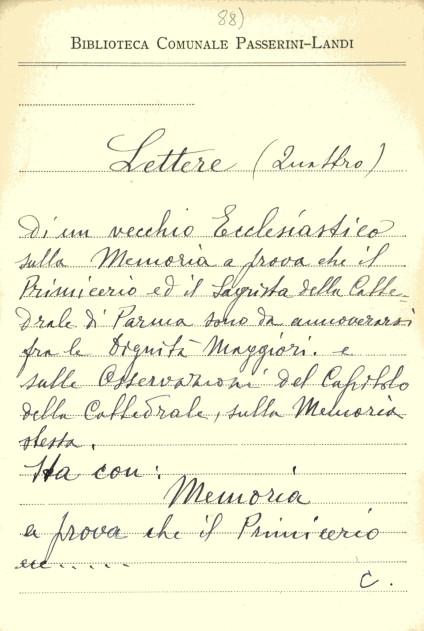 88)
BIBLIOTECA COMUNALE PASSERINI-LANDI
Lettere (Quattro)
Di un vecchio Ecclesiastico
sulla Memoria a prova che il
Primicerio ed il Sagrista della Catte-
drale di Parma sono da annoverarsi
fra le Dignità Maggiori. e
sulle Osservazioni del Capitolo
della Cattedrale, sulla Memoria
stessa.
Sta con:
Memoria
a prova che il Primicerio
ecc.....
C.